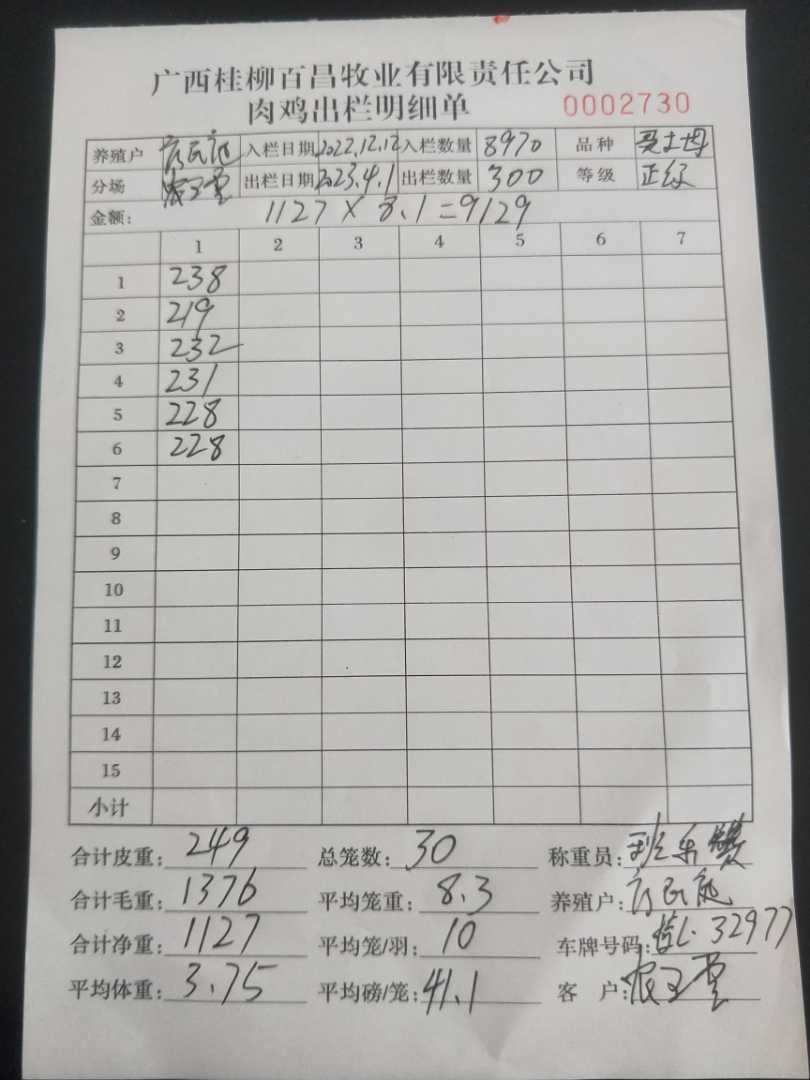 广西桂柳百昌牧业有限责任公司
肉鸡出栏明细单 0002730
养殖户 入栏日期 2022.12.12 入栏数量 8970 品种 土母
分场 出栏日期 2023.4.1 出栏数量 300 等级 正级
金额: 1127 × 8.1 = 9129
1 2 3 4 5 6 7
1 238
2 219
3 232
4 231
5 228
6 228
7
8
9
10
11
12
13
14
15
小计
合计皮重: 249 总笼数: 30 称重员:
合计毛重: 1376 平均笼重: 8.3 养殖户:
合计净重: 1127 平均笼/羽: 10 车牌号码: 桂L·32977
平均体重: 3.75 平均磅/笼: 41.1 客 户: